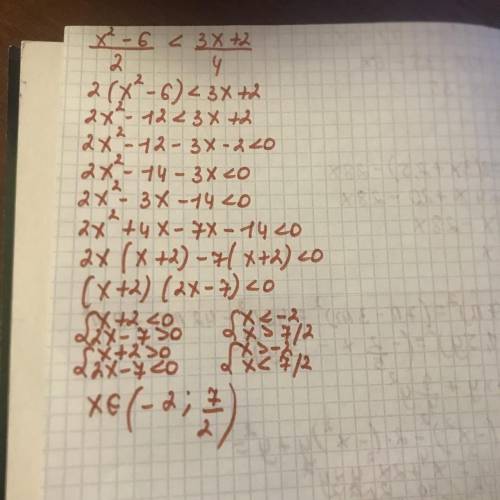 x² - 6 / 2 < 3x + 2 / 4
2(x² - 6) < 3x + 2
2x² - 12 < 3x + 2
2x² - 12 - 3x - 2 < 0
2x² - 14 - 3x < 0
2x² - 3x - 14 < 0
2x² + 4x - 7x - 14 < 0
2x (x + 2) - 7 (x + 2) < 0
(x + 2) (2x - 7) < 0
{ x + 2 < 0 { x < -2
2x - 7 > 0 x > 7/2
{ x + 2 > 0 { x > -2
2x - 7 < 0 x < 7/2
x ∈ (-2; 7/2)